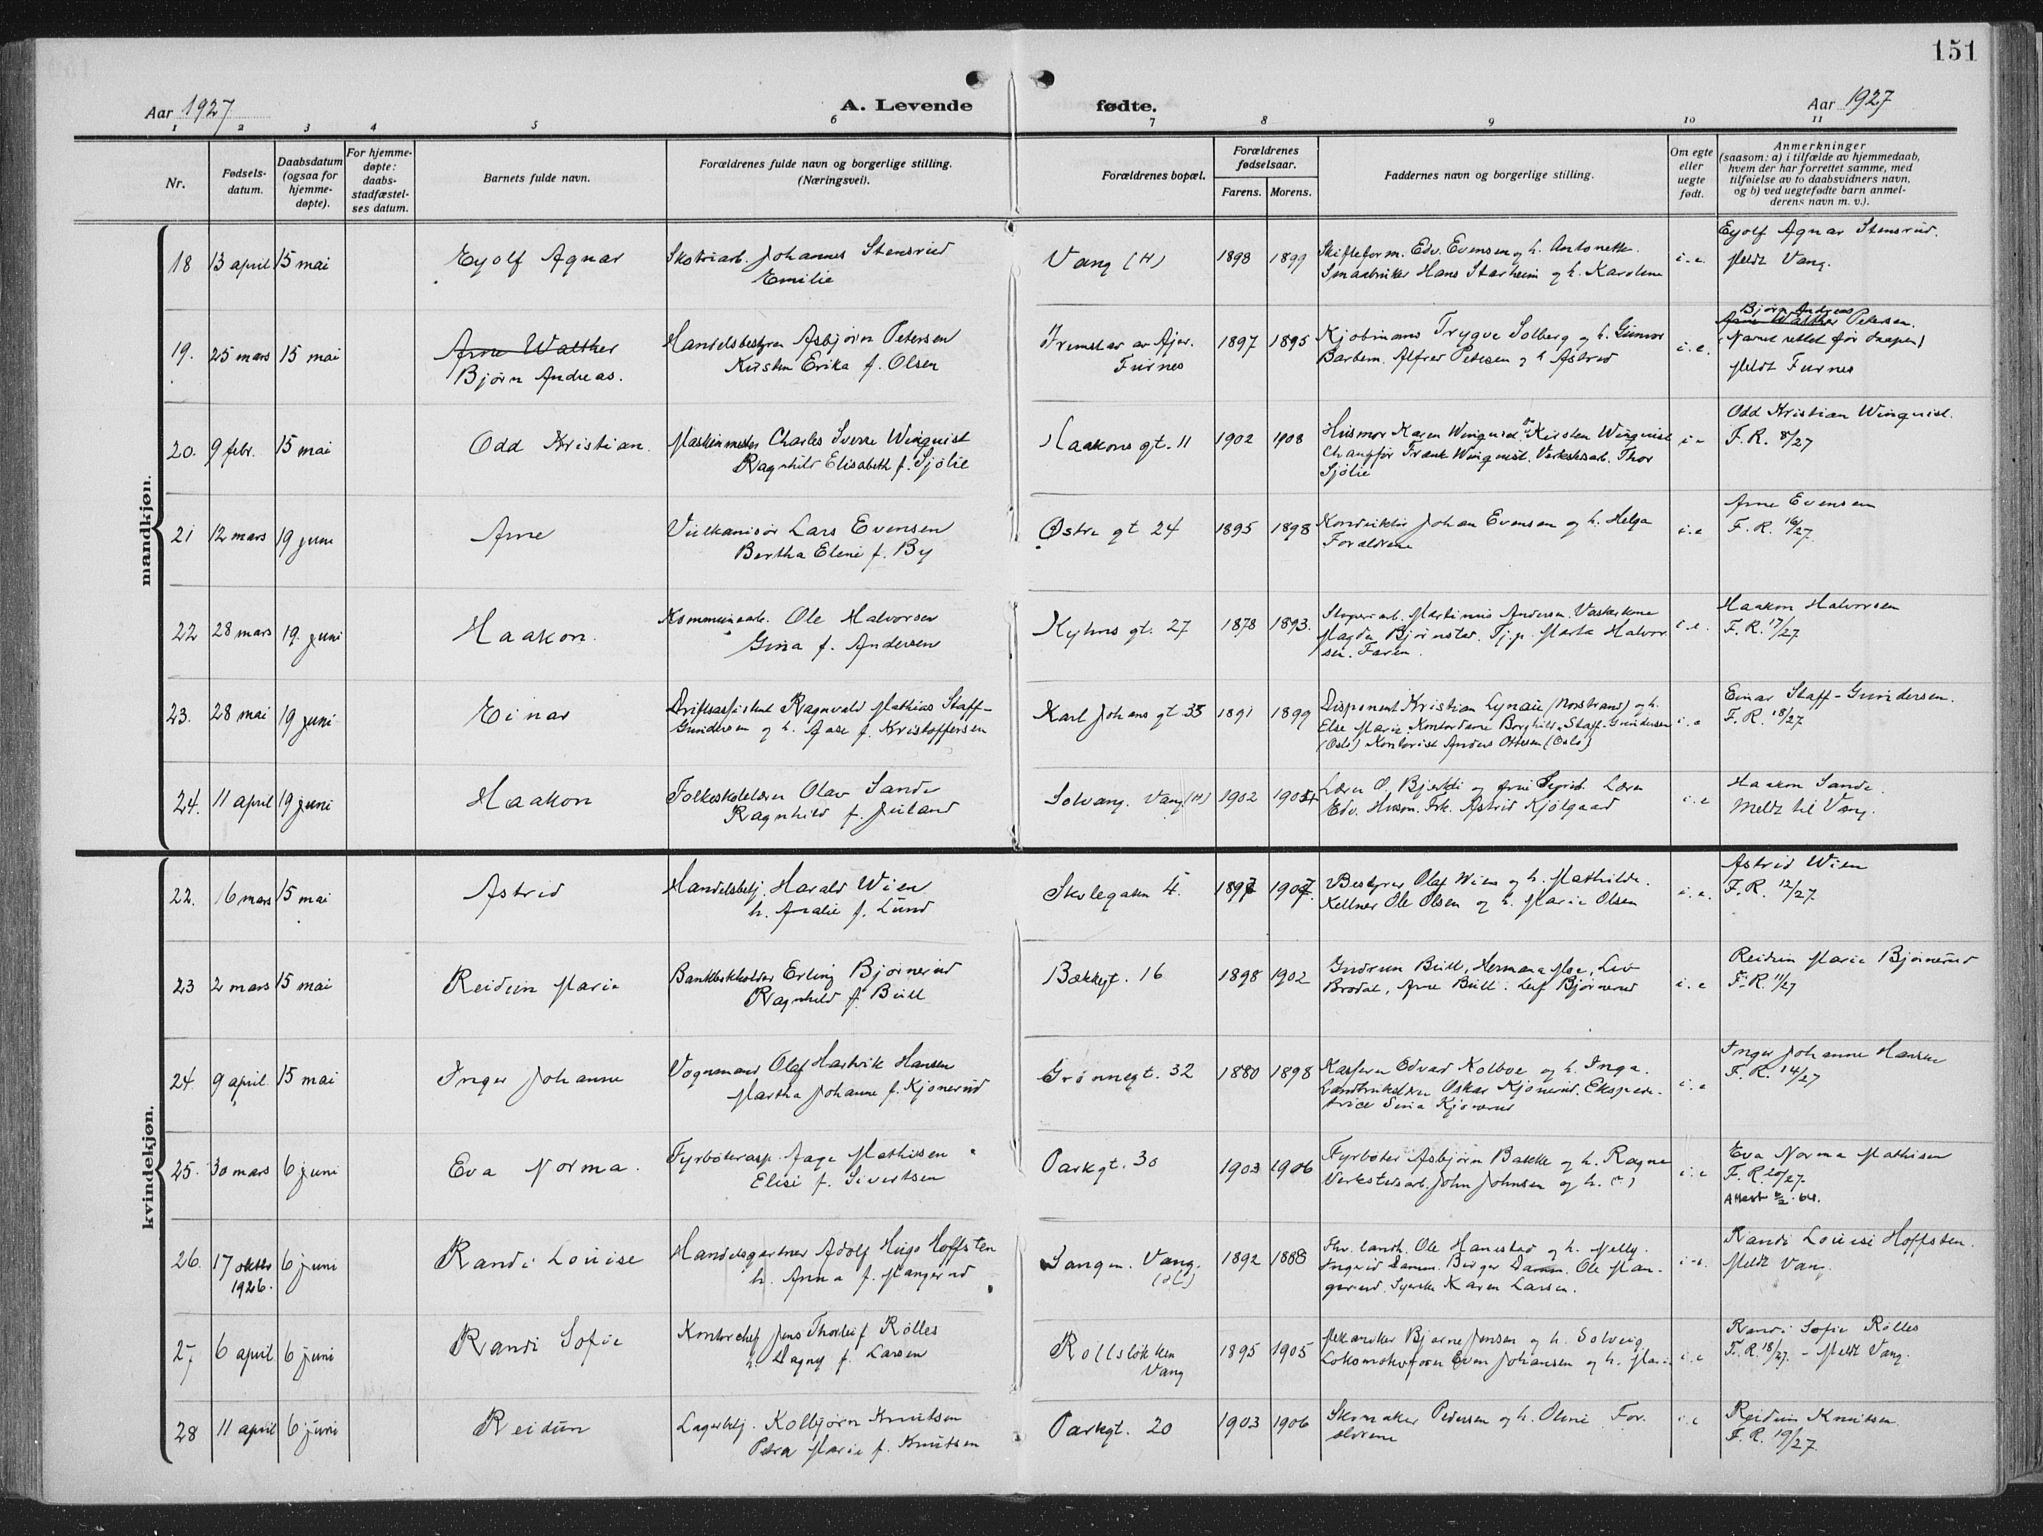 151
Aar 1927
A. Levende fødte.
Aar 1927
1 2 3 4 5 6 7 8 9 10 11
Nr.
Fødsels-
datum.
Daabsdatum
(ogsaa for
hjemme-
døpte).
For hjemme-
døpte:
daabs-
stadfæstel-
ses datum.
Barnets fulde navn.
Forældrenes fulde navn og borgerlige stilling.
(Næringsvei).
Forældrenes bopæl.
Forældrenes
fødselsaar.
Farens. Morens.
Faddernes navn og borgerlige stilling.
Om egte
eller
uegte
født.
Anmerkninger
(saasom: a) i tilfælde av hjemmedaab,
hvem der har forrettet samme, med
tilføielse av to daabsvidners navn,
og b) ved uegtefødte barn anmel-
derens navn m. v.).
mandkjøn.
18 13 april 15 mai Eyolf Agnar
Skotøiarb. Johannes Stensrud
Emilie
Vang (H) 1898 1899
Skifteform. Edv. Evensen og h. Antonette
Smaabruker Hans Starheim og h. Karoline
i.e.
Eyolf Agnar Stensrud.
Meldt Vang.
19. 25 mars 15 mai Arne Walther
Bjørn Andreas.
Handelsbestyrer Asbjørn Petersen
Kirsten Erika f. Olsen
Fremstad av Ajer.
Furnes
1897 1895
Kjøbmand Trygve Solberg og h. Gunvor
Barberm. Alfred Petersen og h. Astrid
i.e.
Bjørn Andreas
Arne Walther Petersen.
(Navnet rettet før daapen)
Meldt Furnes
20. 9 febr. 15 mai Odd Kristian.
Maskinmester Charles Sverre Winquist
Ragnhild Elisabeth f. Sjølie
Haakons gt. 11 1902 1908
Husmor Karen Winquist og Kirsten Winquist
Changfør Frank Winquist. Verkstedarb. Thor
Sjølie
i.e
Odd Kristian Winquist.
F.R. 8/27
21 12 mars 19 juni Arne
Vulkanisør Lars Evensen
Bertha Eline f. By
Østre gt 24 1895 1898
Konduktør Johan Evensen og h. Helga
Forældrene
i.e
Arne Evensen
F.R. 16/27.
22 28 mars 19. juni Haakon.
Kommunearb. Ole Halvorsen
Gina f. Andersen
Kyhns gt. 27 1878 1893.
Støperiarb. Martinius Andersen. Vaskerkone
Magda Bjørnstad. Tj.p. Marta Halvor
sen. Faren.
i.e.
Haakon Halvorsen
F.R. 17/27
23. 28 mai 19 juni Einar
Driftsassistent Ragnvald Mathias Staff-
Gundersen og h. Aase f. Kristoffersen
Karl Johans gt 35 1891 1899
Disponent Kristian Lynaie (Norstrand) og h.
Else Marie. Kontordame Borghild Staff-Gundersen
(Oslo) Kontorist Anders Ottesen (Oslo)
i.e
Einar Staff-Gundersen.
F.R. 18/27
24. 11 april 19 juni Haakon
Folkeskolelærer Olav Sande
Ragnhild f. Juland
Solvang. Vang (H) 1902 1904
Lærer O. Bjerke og frue Sigrid. Lærer
Edv. Huson. Frk. Astrid Kjølgaard
i.e
Haakon Sande.
Meldt til Vang.
kvindekjøn.
22. 16 mars 15 mai Astrid
Handelsbetj. Harald Wien
h. Amalie f. Lund
Skolegaten 4. 1897 1907.
Bestyrer Olaf Wien og h. Mathilde.
Kellner Ole Olsen og h. Marie Olsen
i.e.
Astrid Wien
F.R. 12/27
23 2 mars 15 mai Reidun Marie
Bankbokholder Erling Bjørnerud
Ragnhild f. Bull
Bækkegt. 16 1898 1902
Gudrun Bull, Hermana Moe, Liv
Brodal, Arne Bull. Leif Bjørnerud
i.e
Reidun Marie Bjørnerud
F.R. 11/27
24. 9 april 15 mai Inger Johanne
Vognmand Olaf Hartvik Hansen
Martha Johanne f. Kjønerud
Grønnegt. 32 1880 1898
Kasserer Edvard Kolboe og h. Inga.
Landbrukslærer Oskar Kjønerud. Ekspedi-
trice Signe Kjønerud
i.e
Inger Johanne Hansen
F.R. 14/27
25. 30 mars 6 juni Eva Norma.
Fyrbøterasp. Aage Mathisen
Elise f. Sivertsen
Parkgt. 30 1903 1906
Fyrbøter Asbjørn Bakke og h. Ragna
Verkstedsarb. John Johnsen og h. (")
i.e
Eva Norma Mathisen
F.R. 20/27.
Attest 6/2.64.
26. 17 oktbr 6 juni Randi Louise
1926.
Handelsgartner Adolf Hugo Hoffsten
h. Anna f. Mangerud
Sangen. Vang.
(H)
1892 1888
Fhv. landh. Ole Hanestad og h. Nelly.
Ingerid Damm. Birger Damm. Ole Man-
gerud. Syerske Karen Larsen.
i.e.
Randi Louise Hoffsten.
Meldt Vang.
27 6 april 6 juni Randi Sofie
Kontorchef Jens Thorleif Rølles
h. Dagny f. Larsen
Rollsløkken
Vang
1895 1905
Mekaniker Bjarne Jensen og h. Solveig
Lokomotivfører Even Johansen og h. Marie
i.e
Randi Sofie Rølles
F.R. 18/27. - Meldt Vang.
28 11 april 6 juni Reidun
Lagerbetj. Kolbjørn Knutsen
Petra Marie f. Knutsen
Parkgt. 20 1903 1906
Skomaker Pedersen og h. Oline For.
ældrene
i.e
Reidun Knutsen.
F.R. 19/27.